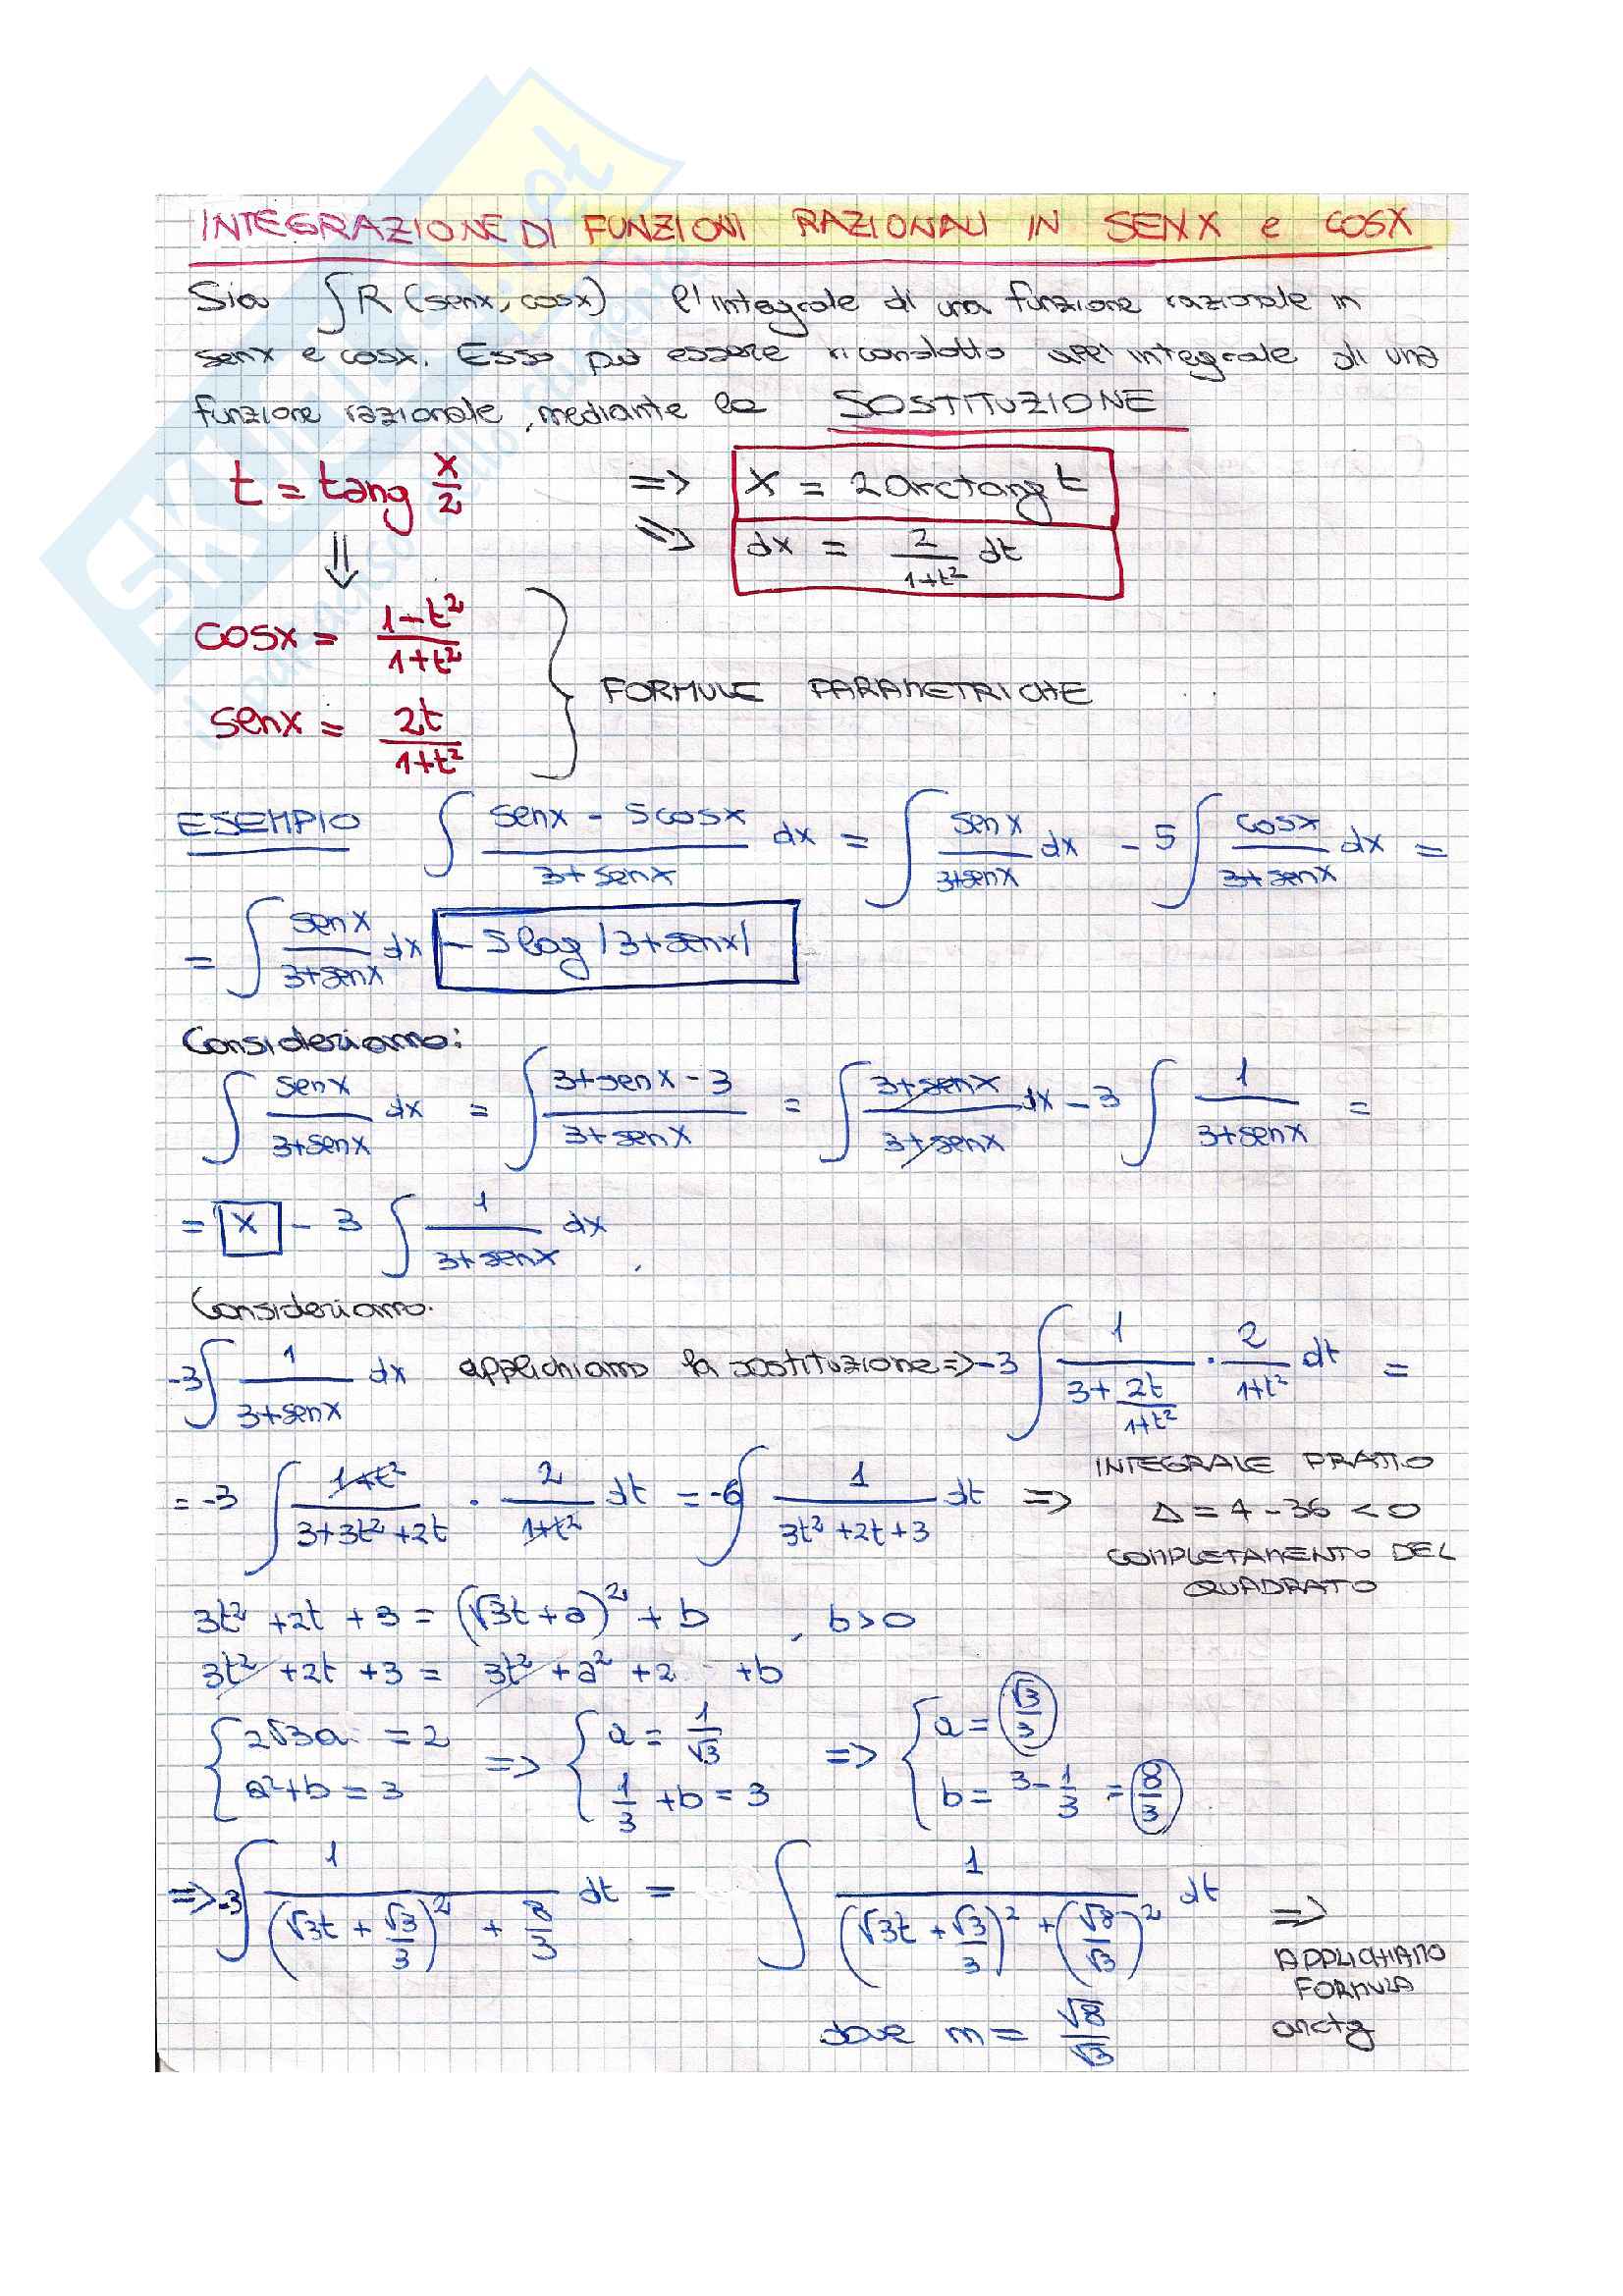 INTEGRAZIONE DI FUNZIONI RAZIONALI IN SENX e COSX
Sia ∫R(senx, cosx) l'integrale di una funzione razionale in
senx e cosx. Esso può essere ricondotto all'integrale di una
funzione razionale, mediante la SOSTITUZIONE
t = tang x/2 => x = 2arctang t
⇓ => dx = 2/(1+t²) dt
cosx = (1-t²)/(1+t²)
FORMULE PARAMETRICHE
senx = 2t/(1+t²)
ESEMPIO ∫ (senx - 5cosx)/(3+senx) dx = ∫ senx/(3+senx) dx - 5∫ cosx/(3+senx) dx =
= ∫ senx/(3+senx) dx - 5log|3+senx|
Consideriamo:
∫ senx/(3+senx) dx = ∫ (3+senx-3)/(3+senx) = ∫ (3+senx)/(3+senx) dx - 3∫ 1/(3+senx) =
= x - 3 ∫ 1/(3+senx) dx
Consideriamo.
-3∫ 1/(3+senx) dx applichiamo la sostituzione => -3∫ 1/(3+2t/(1+t²)) · 2/(1+t²) dt =
= -3 ∫ (1+t²)/(3+3t²+2t) · 2/(1+t²) dt = -6∫ 1/(3t²+2t+3) dt => INTEGRALE FRATTO
Δ = 4 - 36 < 0
COMPLETAMENTO DEL
QUADRATO
3t² + 2t + 3 = (√3t + a)² + b, b>0
3t² + 2t + 3 = 3t² + a² + 2 + b
{ 2√3a = 2 => { a = 1/√3 => { a = √3/3
{ a²+b = 3 { 1/3 + b = 3 { b = 3 - 1/3 = 8/3
=> -3∫ 1/((√3t + √3/3)² + 8/3) dt = ∫ 1/((√3t + √3/3)² + (√8/√3)²) dt =>
APPLICHIAMO
FORMULA
arctg
dove m = √8/√3